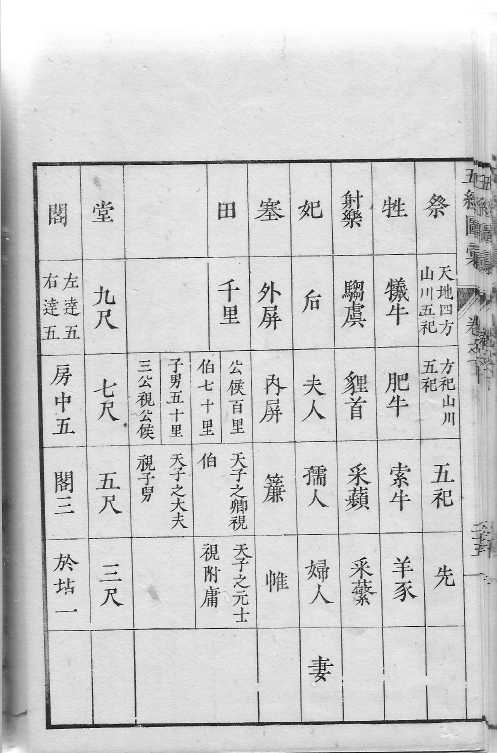 祭
天地四方
山川五祀
方祀山川
五祀
五祀
先
牲
犧牛
肥牛
索牛
羊豕
射樂
騶虞
貍首
采蘋
采蘩
妃
后
夫人
孺人
婦人
妻
塞
外屏
內屏
簾
帷
田
千里
公侯百里
伯七十里
子男五十里
三公視公侯
天子之卿視
伯
天子之大夫
視子男
天子之元士
視附庸
堂
九尺
七尺
五尺
三尺
閣
左達五
右達五
房中五
閣三
於坫一
五經圖彙